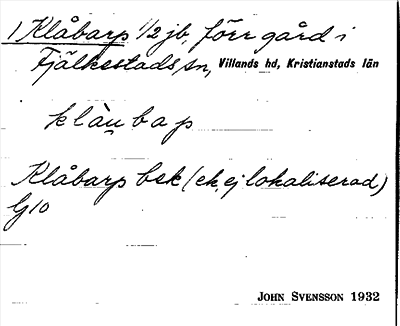 1 Klåbarp 1/2 jb, förr gård i
Fjälkestads sn, Villands hd, Kristianstads län
klàu̯bap
Klåbarp bsk (ek, ej lokaliserad)
G10
JOHN SVENSSON 1932